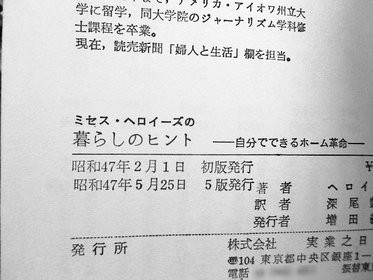 アメリカ・アイオワ州立大
学に留学，同大学院のジャーナリズム学科修
士課程を卒業。
現在，読売新聞「婦人と生活」欄を担当。
ミセス・ヘロイーズの
暮らしのヒント ——自分でできるホーム革命——
昭和47年2月1日 初版発行
昭和47年5月25日 5版発行
著者 ヘロイ
訳者 深尾
発行者 増田
発行所 株式会社 実業之日
〠104 東京都中央区銀座1－
電話 振替東